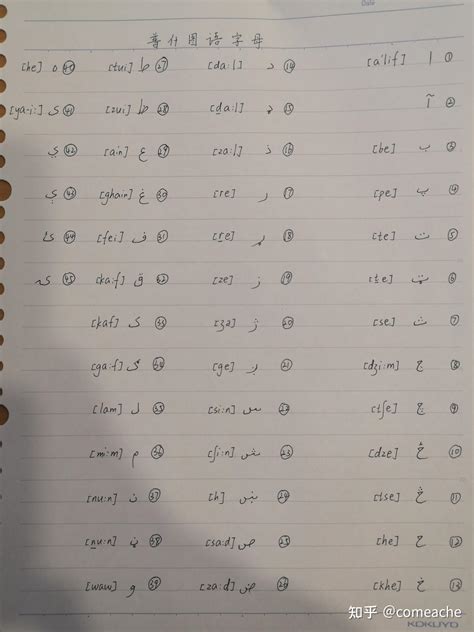 Date
普什图语字母
[he] ه ㊵ [tui] ط ㉗ [da:l] د ⑭ [a'lif] ا ①
[ya-i:] ی ㊶ [zui] ظ ㉘ [ḏa:l] ډ ⑮ آ ②
ي ㊷ [ain] ع ㉙ [za:l] ذ ⑯ [be] ب ③
ې ㊸ [ghain] غ ㉚ [re] ر ⑰ [pe] پ ④
ئ ㊹ [fei] ف ㉛ [ṟe] ړ ⑱ [te] ت ⑤
ۍ ㊺ [ka:f] ق ㉜ [ze] ز ⑲ [ṯe] ټ ⑥
[kaf] ک ㉝ [ʒə] ژ ⑳ [se] ث ⑦
[ga:f] ګ ㉞ [ge] ږ ㉑ [dʒi:m] ج ⑧
[lam] ل ㉟ [si:n] س ㉒ [tʃe] چ ⑨
[mi:m] م ㊱ [ʃi:n] ش ㉓ [dze] ځ ⑩
[nu:n] ن ㊲ [h] ښ ㉔ [tse] څ ⑪
[ṉu:n] ڼ ㊳ [sa:d] ص ㉕ [he] ح ⑫
[waw] و ㊴ [za:d] ض ㉖ [khe] خ ⑬
KOKUYO
知乎 @comeache